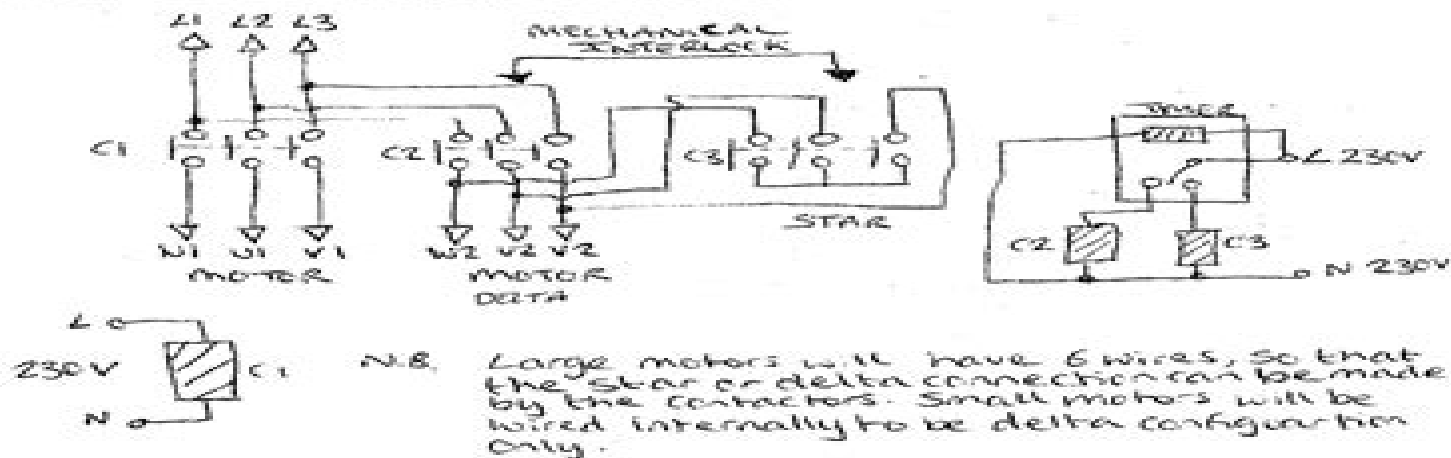 L1 L2 L3
MECHANICAL
INTERLOCK
TIMER
C1
C2
C3
L 230V
STAR
C2
C3
N 230V
W2 V2
MOTOR
MOTOR
DELTA
L
230V
C1
N
N.B. Large motors will have 6 wires, so that
the star or delta connection can be made
by the contactors. Small motors will be
wired internally to be delta configuration
only.